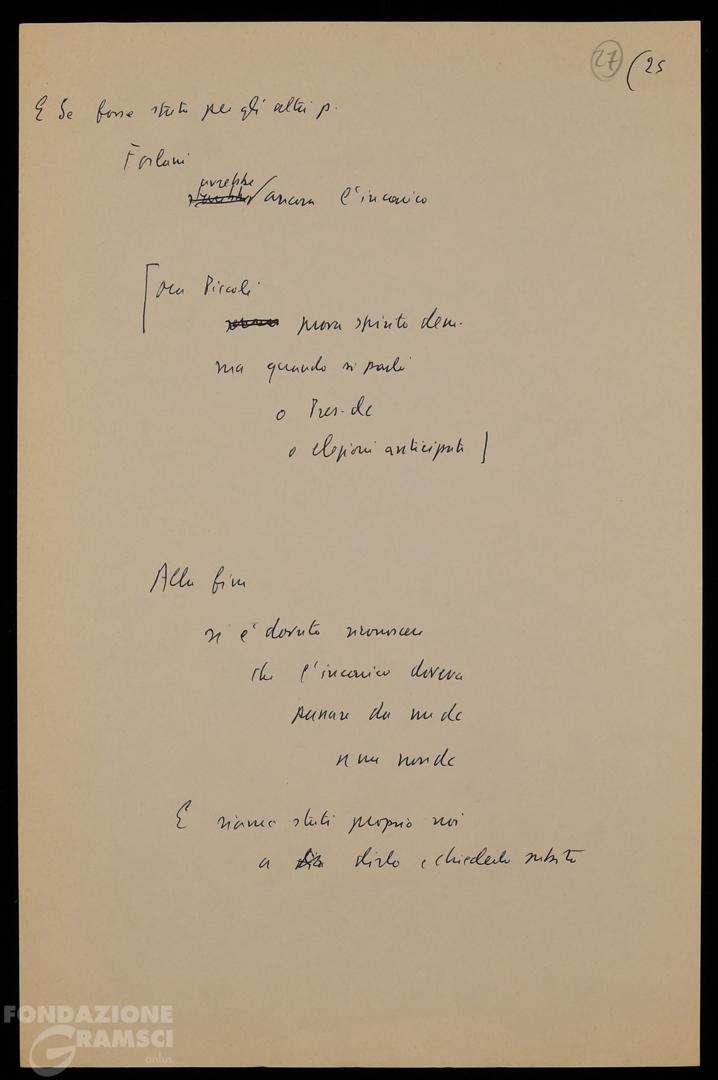 27 (25
E se fosse stato per gli altri p.
Forlani
avrebbe
ancora l'incarico
[ora Piccoli
prova spirito dem.
ma quando si parli
o Pres. dc
o elezioni anticipate ]
Alla fine
si è dovuto riconoscere
che l'incarico doveva
passare da un dc
a un non dc
E siamo stati proprio noi
a dirlo e chiederlo subito
FONDAZIONE
GRAMSCI
onlus